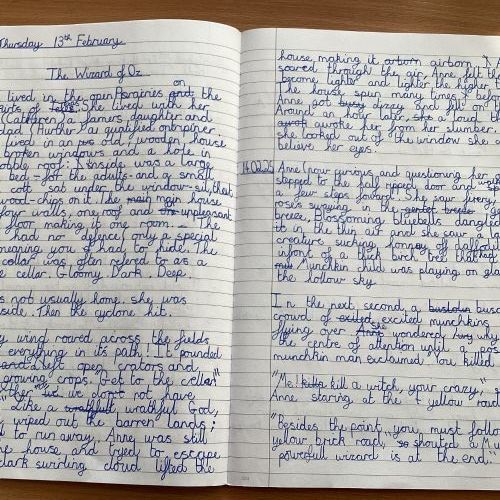 Thursday 13th February
The Wizard of Oz
lived in the open prairies on the
. She lived with her
(Catheren) a farmers daughter and
dad (Aurther) a qualified entrpiner.
lived in an old, wooden, house
broken windows and a hole in
roof. Inside was a large
bed - for the adults - and a small
cot sat under the window-sill that
wood-chips on it. The main house
four walls, one roof and unpleasant
floor, making it one room. The
had no defence, only a special
meaning you'd had to hide. The
cellar was often refered to as a
cellar. Gloomy. Dark. Deep.
not usually home, she was
side. Then the cyclone hit.
wind roared across the fields
everything in its path! It pounded
left open crators and
growing crops. "Get to the cellar"
we won't not have
Like a wrathful God,
wiped out the barren lands;
to run away. Anne was still
house and tryed to escape
dark swirling cloud lifted the
house, making it airborn.
soared through the air, Anne felt the
become lighter and lighter the higher
The house span many times before
Anne got dizzy and fell on
Around an hour later, a loud
awoke her from her slumber.
she looked out of the window she
believe her eyes.
14.02.25 Anne (now curious and questioning her
stepped to the half ripped door and
a few steps forward. She saw firery
roses swaying in the
breeze. Blossoming bluebells dangled
in the thin air and she saw a
creature sucking honey of daffod
infront of a thick birch tree that had
Munchkin child was playing on
the hollow sky.
In the next second, a
crowd of excited munchkins
flying over. She wondered why
the centre of attention until a
munchkin man exclaimed, "You killed
"Me! kill a witch, your crazy,"
Anne staring at the yellow
"Besides the point, you must follow
yellow brick road," shouted a
powerfull wizard is at the end."